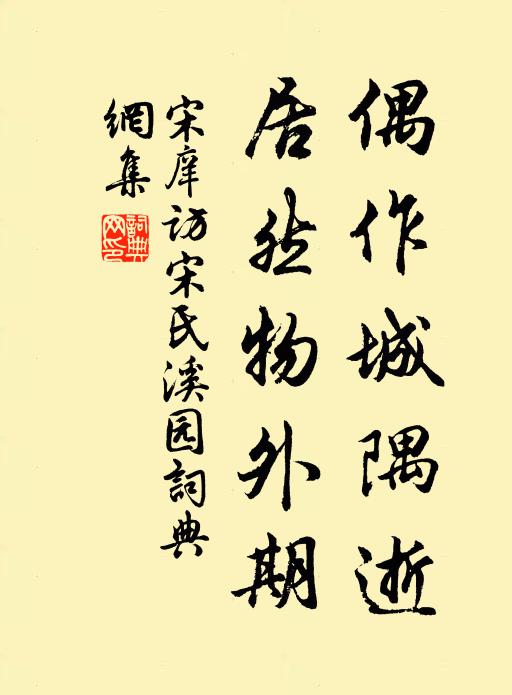 偶作城隅逝
居然物外期
宋庠访宋氏溪园詞典
網集
詞典網印